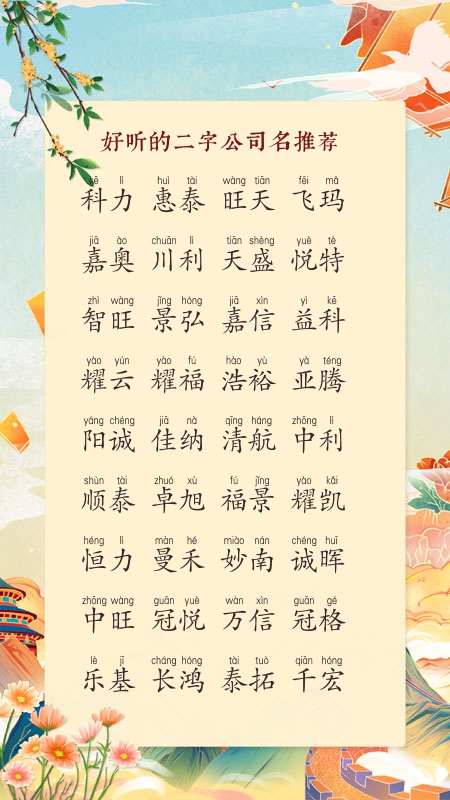 好听的二字公司名推荐
kē lì huì tài wàng tiān fēi mǎ
科力 惠泰 旺天 飞玛
jiā ào chuān lì tiān shèng yuè tè
嘉奥 川利 天盛 悦特
zhì wàng jǐng hóng jiā xìn yì kē
智旺 景弘 嘉信 益科
yào yún yào fú hào yù yà téng
耀云 耀福 浩裕 亚腾
yáng chéng jiā nà qīng háng zhōng lì
阳诚 佳纳 清航 中利
shùn tài zhuó xù fú jǐng yào kǎi
顺泰 卓旭 福景 耀凯
héng lì màn hé miào nán chéng huī
恒力 曼禾 妙南 诚晖
zhōng wàng guān yuè wàn xìn guān gé
中旺 冠悦 万信 冠格
lè jī cháng hóng tài tuò qiān hóng
乐基 长鸿 泰拓 千宏